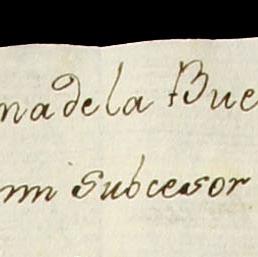 na de la Bue
mi Subcesor